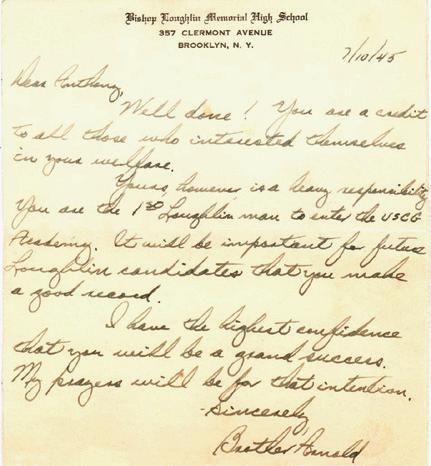 Bishop Loughlin Memorial High School
357 CLERMONT AVENUE
BROOKLYN, N. Y.
7/10/45
Dear Anthony,
Well done! You are a credit
to all those who interested themselves
in your welfare.
Yours, however is a heavy responsibility
You are the 1st Loughlin man to enter the USCG
Academy. It will be important for future
Loughlin candidates that you make
a good record.
I have the highest confidence
that you will be a grand success.
My prayers will be for that intention.
Sincerely
Brother Arnold